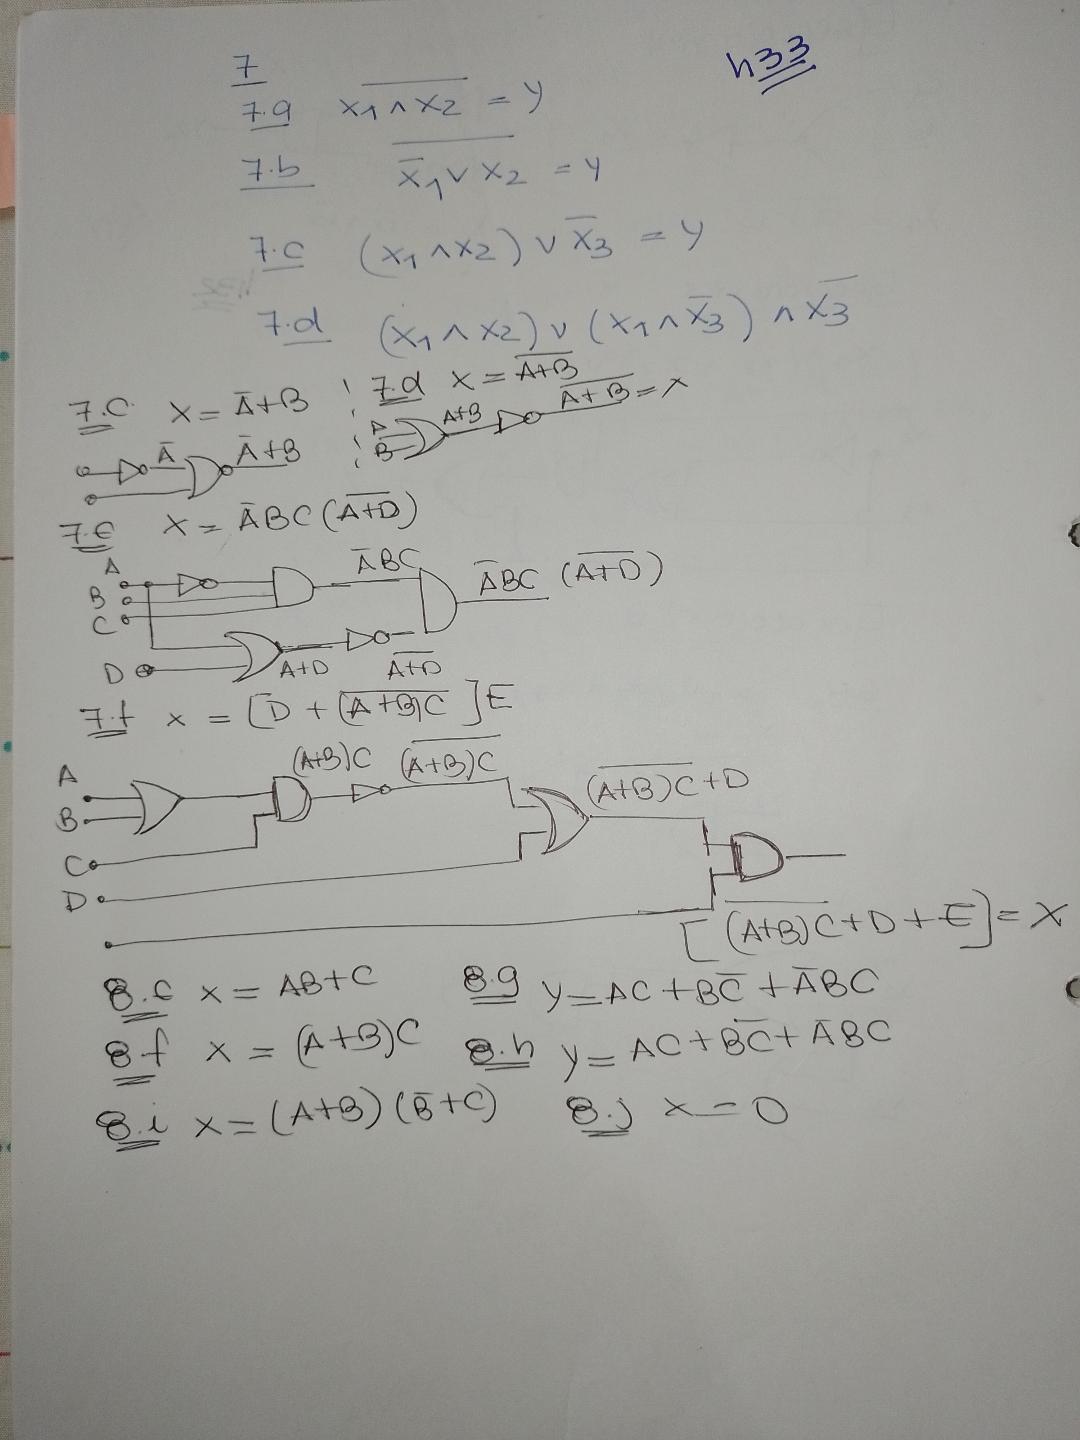 7
h33
7.a x̅₁̅ ̅∧̅ ̅x̅₂̅ = y
7.b x̅₁̅ ̅∨̅ ̅x̅₂̅ = y
7.c (x₁ ∧ x₂) ∨ x̅₃ = y
7.d (x₁ ∧ x₂) ∨ (x₁ ∧ x̅₃) ∧ x̅₃
7.c x = A̅+B
7.d x = A̅+̅B̅
A̅ A̅+B
A B A+B A̅+̅B̅ = x
7.e x = A̅BC(A̅+̅D̅)
A B C D
A̅BC A̅BC (A̅+̅D̅)
A+D A̅+̅D̅
7.f x = [D + (̅A̅+̅B̅)̅C̅]E
A B C D
(A+B)C (̅A̅+̅B̅)̅C̅ (̅A̅+̅B̅)̅C̅+D
[(̅A̅+̅B̅)̅C̅+D+E] = x
8.e x = AB+C 8.g y = AC + BC̅ + A̅BC
8.f x = (A+B)C 8.h y = AC + BC̅ + A̅BC
8.i x = (A+B) (B̅+C) 8.j x = 0